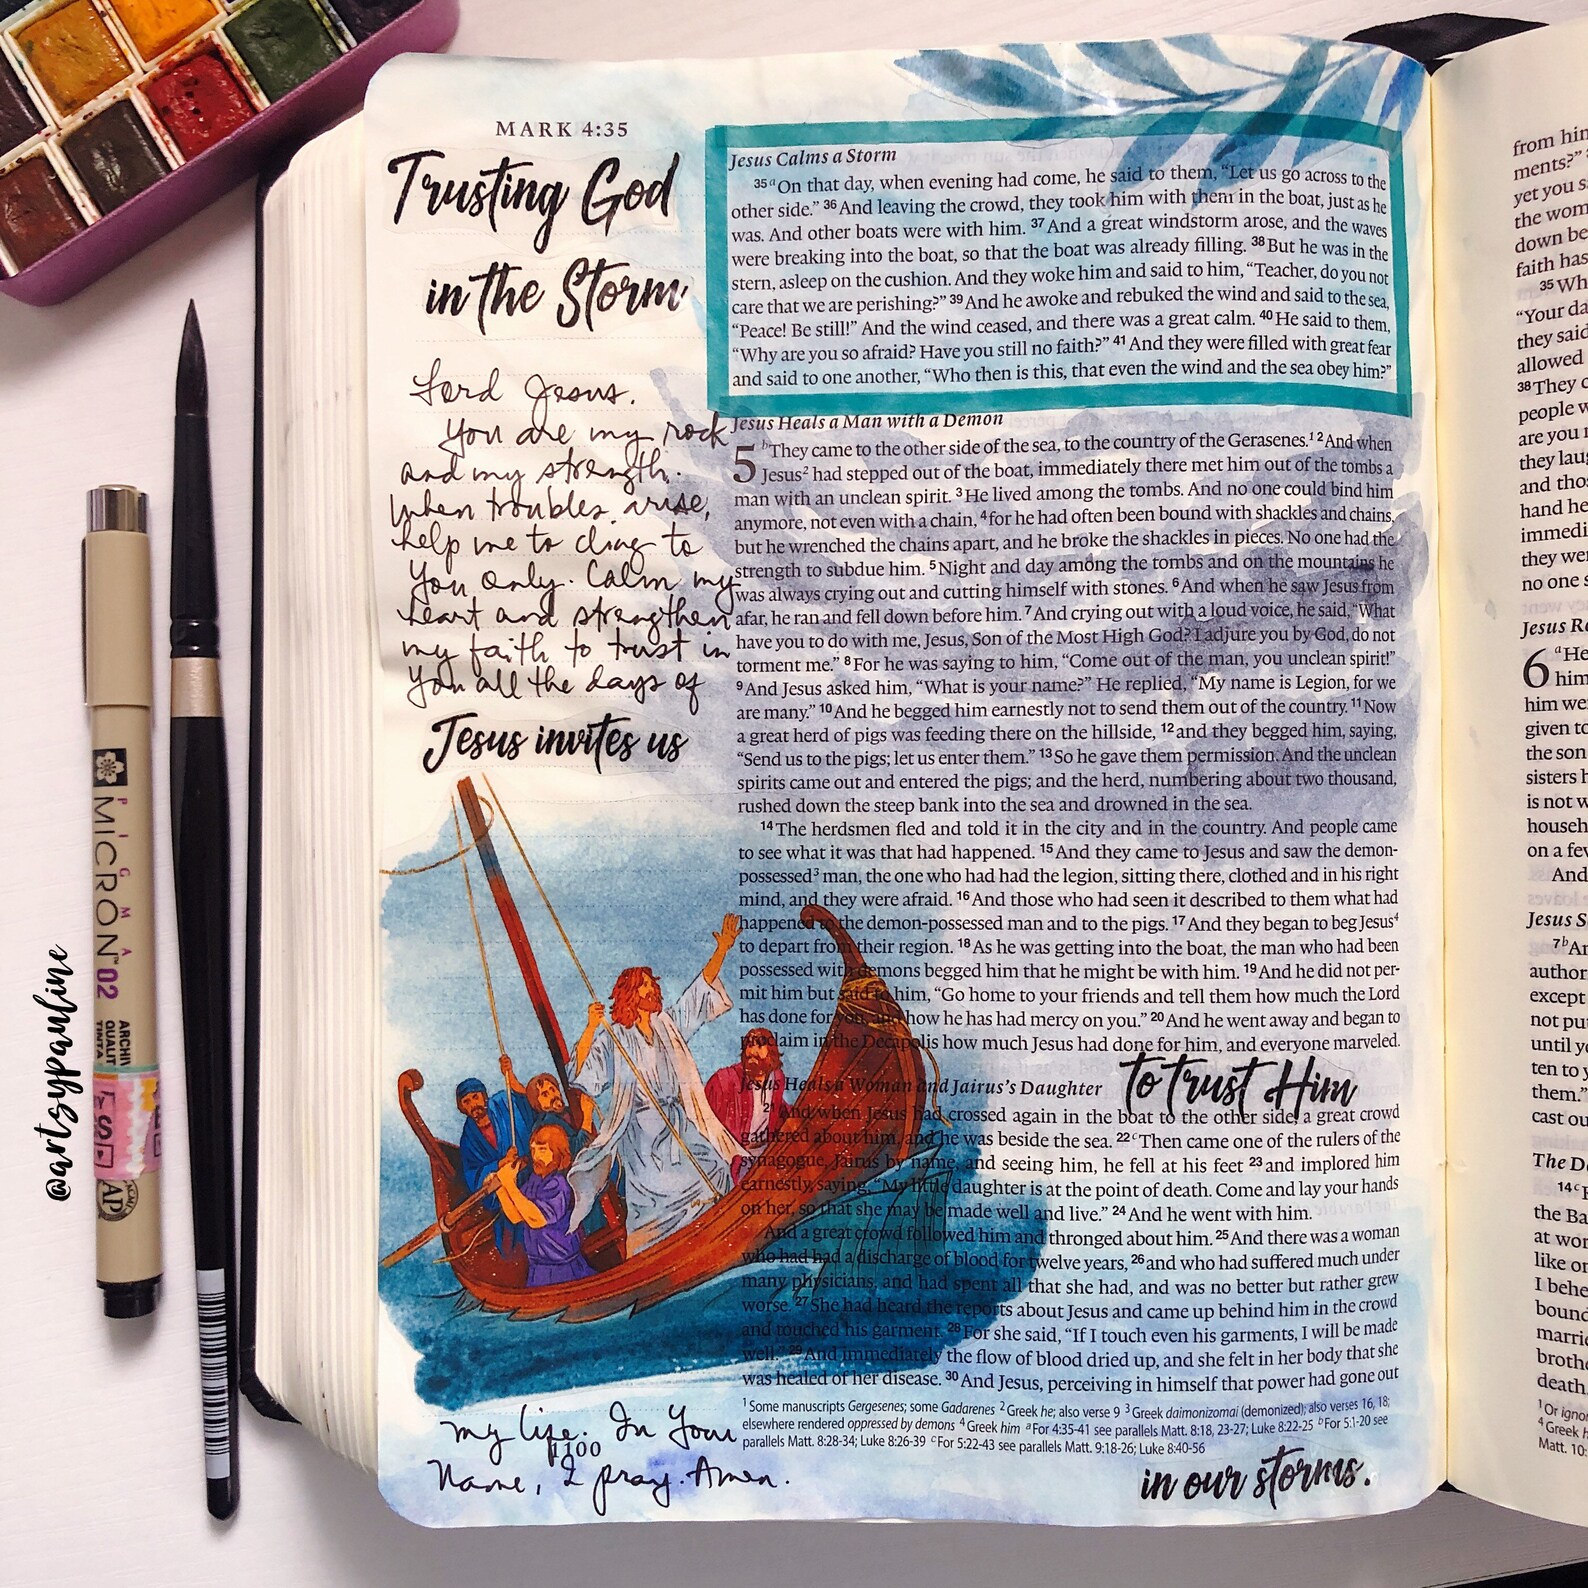 MARK 4:35
Trusting God
in the Storm
Lord Jesus.
You are my rock
and my strength.
When troubles arise,
help me to cling to
You only. Calm my
heart and strengthen
my faith to trust in
You all the days of
Jesus invites us
my life. In Your
1100
Name, I pray. Amen.
Jesus Calms a Storm
35 a On that day, when evening had come, he said to them, “Let us go across to the
other side.” 36 And leaving the crowd, they took him with them in the boat, just as he
was. And other boats were with him. 37 And a great windstorm arose, and the waves
were breaking into the boat, so that the boat was already filling. 38 But he was in the
stern, asleep on the cushion. And they woke him and said to him, “Teacher, do you not
care that we are perishing?” 39 And he awoke and rebuked the wind and said to the sea,
“Peace! Be still!” And the wind ceased, and there was a great calm. 40 He said to them,
“Why are you so afraid? Have you still no faith?” 41 And they were filled with great fear
and said to one another, “Who then is this, that even the wind and the sea obey him?”
Jesus Heals a Man with a Demon
5 b They came to the other side of the sea, to the country of the Gerasenes.1 2 And when
Jesus2 had stepped out of the boat, immediately there met him out of the tombs a
man with an unclean spirit. 3 He lived among the tombs. And no one could bind him
anymore, not even with a chain, 4 for he had often been bound with shackles and chains,
but he wrenched the chains apart, and he broke the shackles in pieces. No one had the
strength to subdue him. 5 Night and day among the tombs and on the mountains he
was always crying out and cutting himself with stones. 6 And when he saw Jesus from
afar, he ran and fell down before him. 7 And crying out with a loud voice, he said, “What
have you to do with me, Jesus, Son of the Most High God? I adjure you by God, do not
torment me.” 8 For he was saying to him, “Come out of the man, you unclean spirit!”
9 And Jesus asked him, “What is your name?” He replied, “My name is Legion, for we
are many.” 10 And he begged him earnestly not to send them out of the country. 11 Now
a great herd of pigs was feeding there on the hillside, 12 and they begged him, saying,
“Send us to the pigs; let us enter them.” 13 So he gave them permission. And the unclean
spirits came out and entered the pigs; and the herd, numbering about two thousand,
rushed down the steep bank into the sea and drowned in the sea.
14 The herdsmen fled and told it in the city and in the country. And people came
to see what it was that had happened. 15 And they came to Jesus and saw the demon-
possessed3 man, the one who had had the legion, sitting there, clothed and in his right
mind, and they were afraid. 16 And those who had seen it described to them what had
happened to the demon-possessed man and to the pigs. 17 And they began to beg Jesus4
to depart from their region. 18 As he was getting into the boat, the man who had been
possessed with demons begged him that he might be with him. 19 And he did not per-
mit him but said to him, “Go home to your friends and tell them how much the Lord
has done for you, and how he has had mercy on you.” 20 And he went away and began to
proclaim in the Decapolis how much Jesus had done for him, and everyone marveled.
Jesus Heals a Woman and Jairus’s Daughter
to trust Him
21 And when Jesus had crossed again in the boat to the other side, a great crowd
gathered about him, and he was beside the sea. 22 c Then came one of the rulers of the
synagogue, Jairus by name, and seeing him, he fell at his feet 23 and implored him
earnestly, saying, “My little daughter is at the point of death. Come and lay your hands
on her, so that she may be made well and live.” 24 And he went with him.
And a great crowd followed him and thronged about him. 25 And there was a woman
who had had a discharge of blood for twelve years, 26 and who had suffered much under
many physicians, and had spent all that she had, and was no better but rather grew
worse. 27 She had heard the reports about Jesus and came up behind him in the crowd
and touched his garment. 28 For she said, “If I touch even his garments, I will be made
well.” 29 And immediately the flow of blood dried up, and she felt in her body that she
was healed of her disease. 30 And Jesus, perceiving in himself that power had gone out
1 Some manuscripts Gergesenes; some Gadarenes 2 Greek he; also verse 9 3 Greek daimonizomai (demonized); also verses 16, 18;
elsewhere rendered oppressed by demons 4 Greek him a For 4:35-41 see parallels Matt. 8:18, 23-27; Luke 8:22-25 b For 5:1-20 see
parallels Matt. 8:28-34; Luke 8:26-39 c For 5:22-43 see parallels Matt. 9:18-26; Luke 8:40-56
in our storms.
from him
ments?”
yet you
the wom
down be
faith has
35 Wh
“Your da
they said
allowed
38 They
people w
are you
they lau
and tho
hand he
immedi
they wer
no one
Jesus Re
6 a He
him
him we
given to
the son
sisters h
is not w
househ
on a few
And
Jesus S
7 b An
author
except
not pu
until y
ten to
them.”
cast ou
The D
14 c
the Ba
at wor
like on
I behe
bound
marri
broth
death.
1 Or ignor
4 Greek
Matt. 10:
PIGMA
MICRON™ 02
ARCHIV
QUALIT
@artsypauline